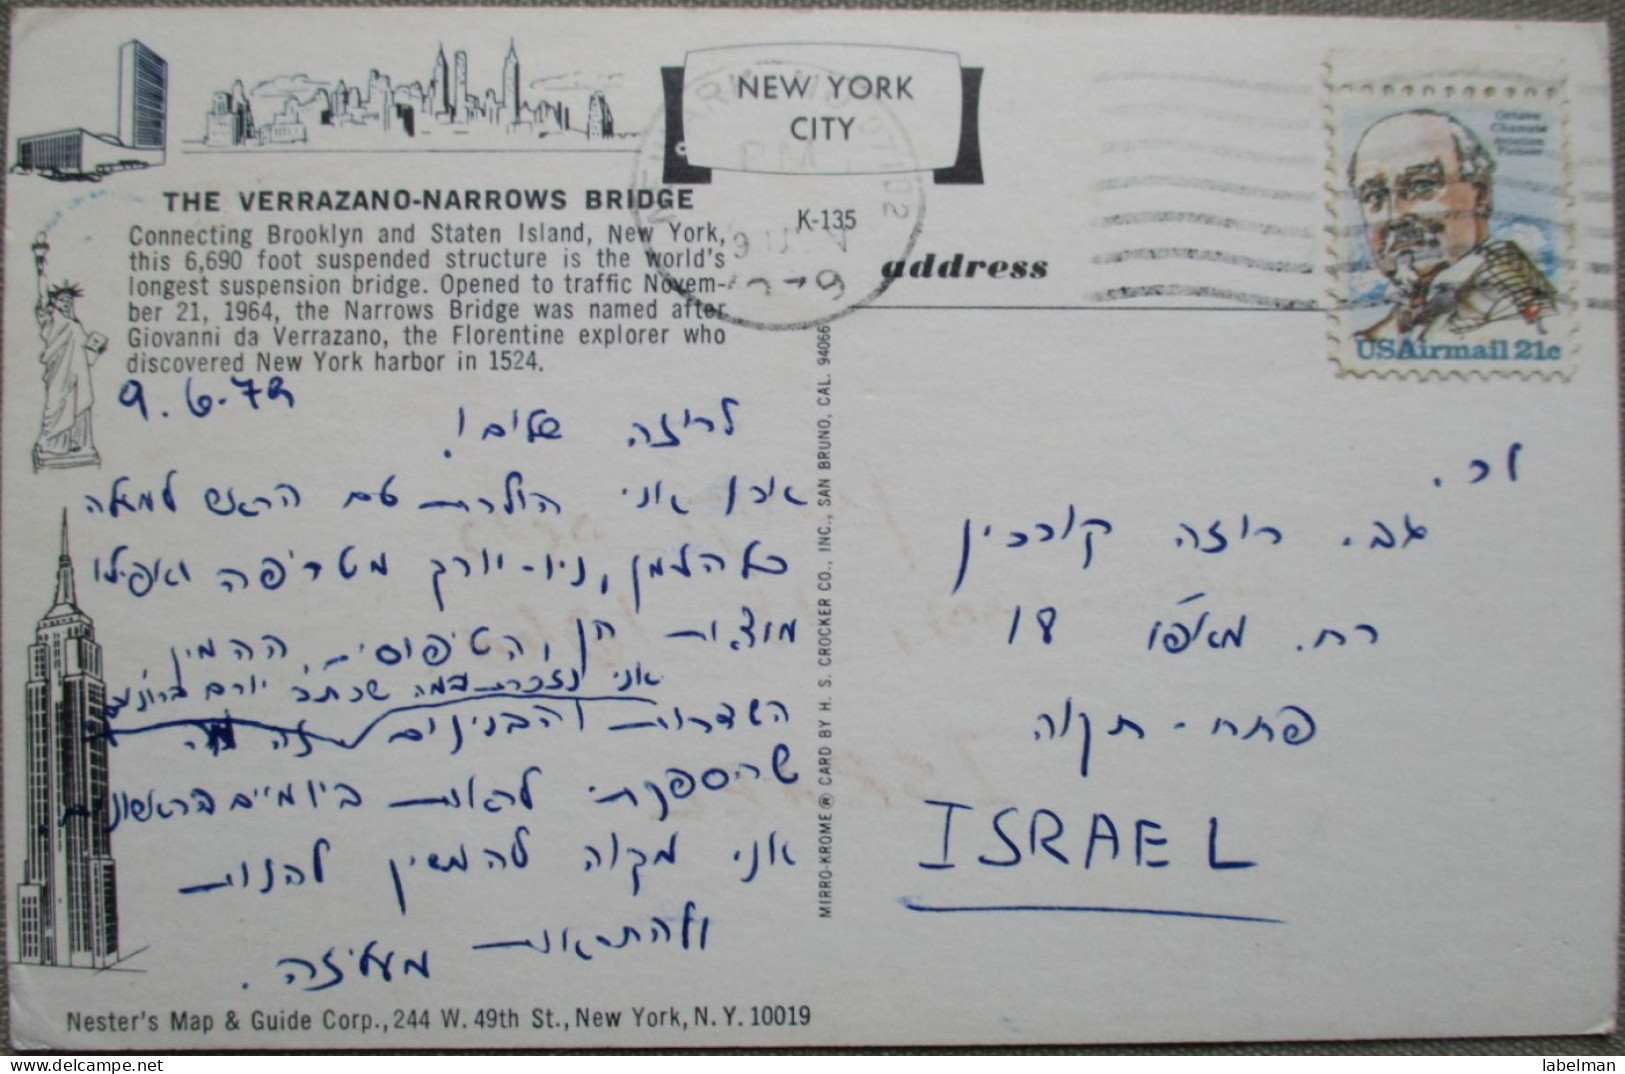 NEW YORK
CITY
THE VERRAZANO-NARROWS BRIDGE
Connecting Brooklyn and Staten Island, New York,
this 6,690 foot suspended structure is the world's
longest suspension bridge. Opened to traffic Novem-
ber 21, 1964, the Narrows Bridge was named after
Giovanni da Verrazano, the Florentine explorer who
discovered New York harbor in 1524.
K-135
address
PM
Octave
Chanute
Aviation
Pioneer
USAirmail 21c
9.6.79
לרוזה שלום!
כאן אני הולכת עם הראש למעלה
כל הזמן, ניו-יורק מטריפה ואפילו
מוצאת חן, הטיפוסים, ההמון
אני נזכרת במה שכתב יורם
השדרות והבנינים זה
שהספקתי לראות ביומיים הראשונים.
אני מקוה להמשיך להנות
ולהתראות
מעליזה.
לכ.
גב. רוזה קורכין
רח. מאפו 18
פתח-תקוה
ISRAEL
MIRRO-KROME ® CARD BY H. S. CROCKER CO., INC., SAN BRUNO, CAL. 94066
Nester's Map & Guide Corp., 244 W. 49th St., New York, N. Y. 10019
labelman